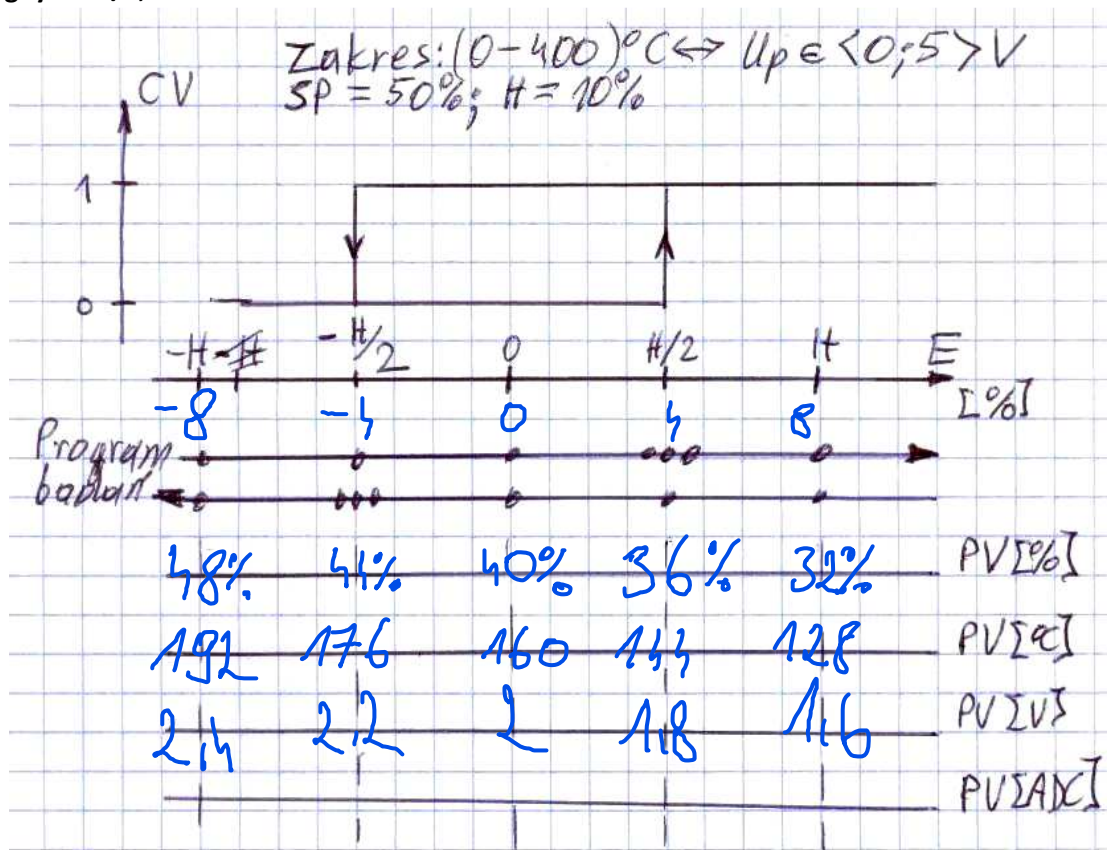 Zakres: (0-400)°C ⇔ Up ∈ <0;5> V
CV SP = 50%; H = 10%
1
0
-H -H/2 0 H/2 H E
-8 -4 0 4 8 [%]
Program
badań
48% 44% 40% 36% 32% PV[%]
192 176 160 144 128 PV[°C]
2,4 2,2 2 1,8 1,6 PV[V]
PV[ADC]